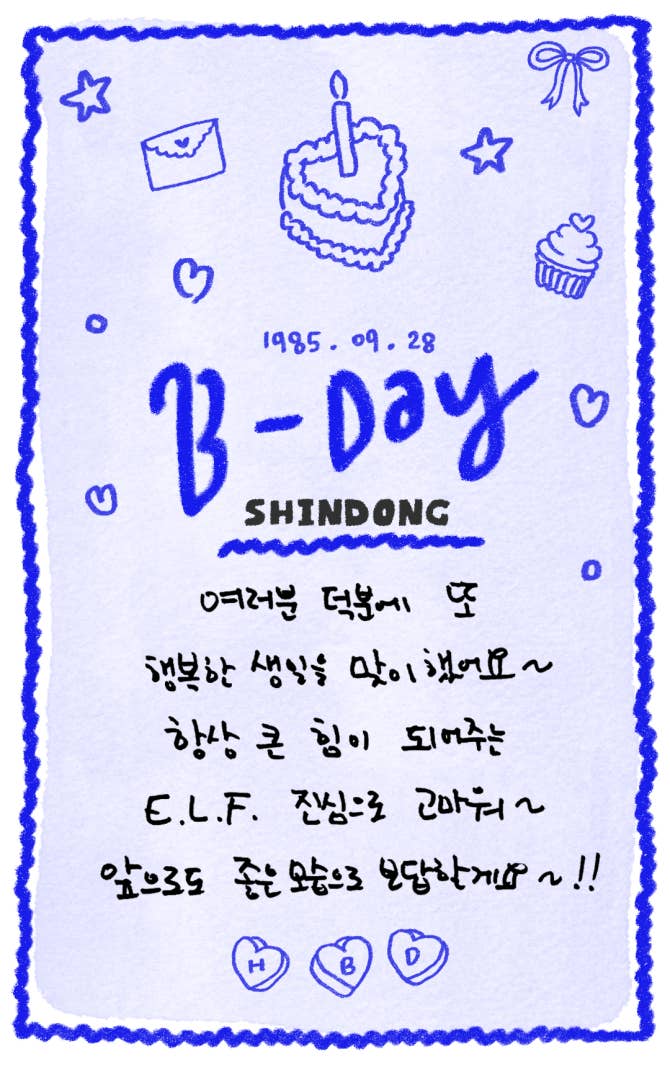 1985.09.28
B-Day
SHINDONG
여러분 덕분에 또
행복한 생일을 맞이했어요~
항상 큰 힘이 되어주는
E.L.F. 진심으로 고마워~
앞으로도 좋은 모습으로 보답할게요~!!
H B D